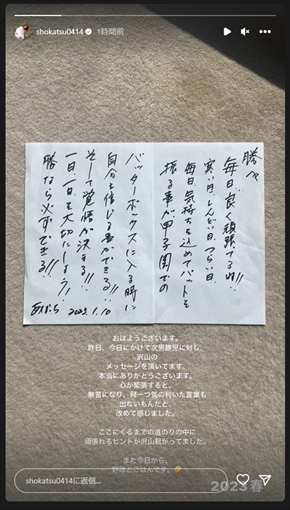 shokatsu0414
1時間前
勝々
毎日、良く頑張ってるね!!
寒い日、しんどい日、つらい日、
毎日、気持ちを込めてバットを
振る事が甲子園での
バッターボックスに入る時に
自分を信じる事ができる!!
そして覚悟が決まる!!
一日、一日を大切にしよう!
勝なら必ずできる!!
2023.1.10
おはようございます。
昨日、今日にかけて次男勝児に対し、
沢山の
メッセージを頂いてます。
本当にありがとうございます。
心が緊張すると、
無言になり、何一つ気の利いた言葉も
出ないもんだと、
改めて感じました。
ここにくるまでの道のりの中に
頑張れるヒントが沢山転がってました。
また今日から、
野球とごはんです。
shokatsu0414に返信...
2023 春